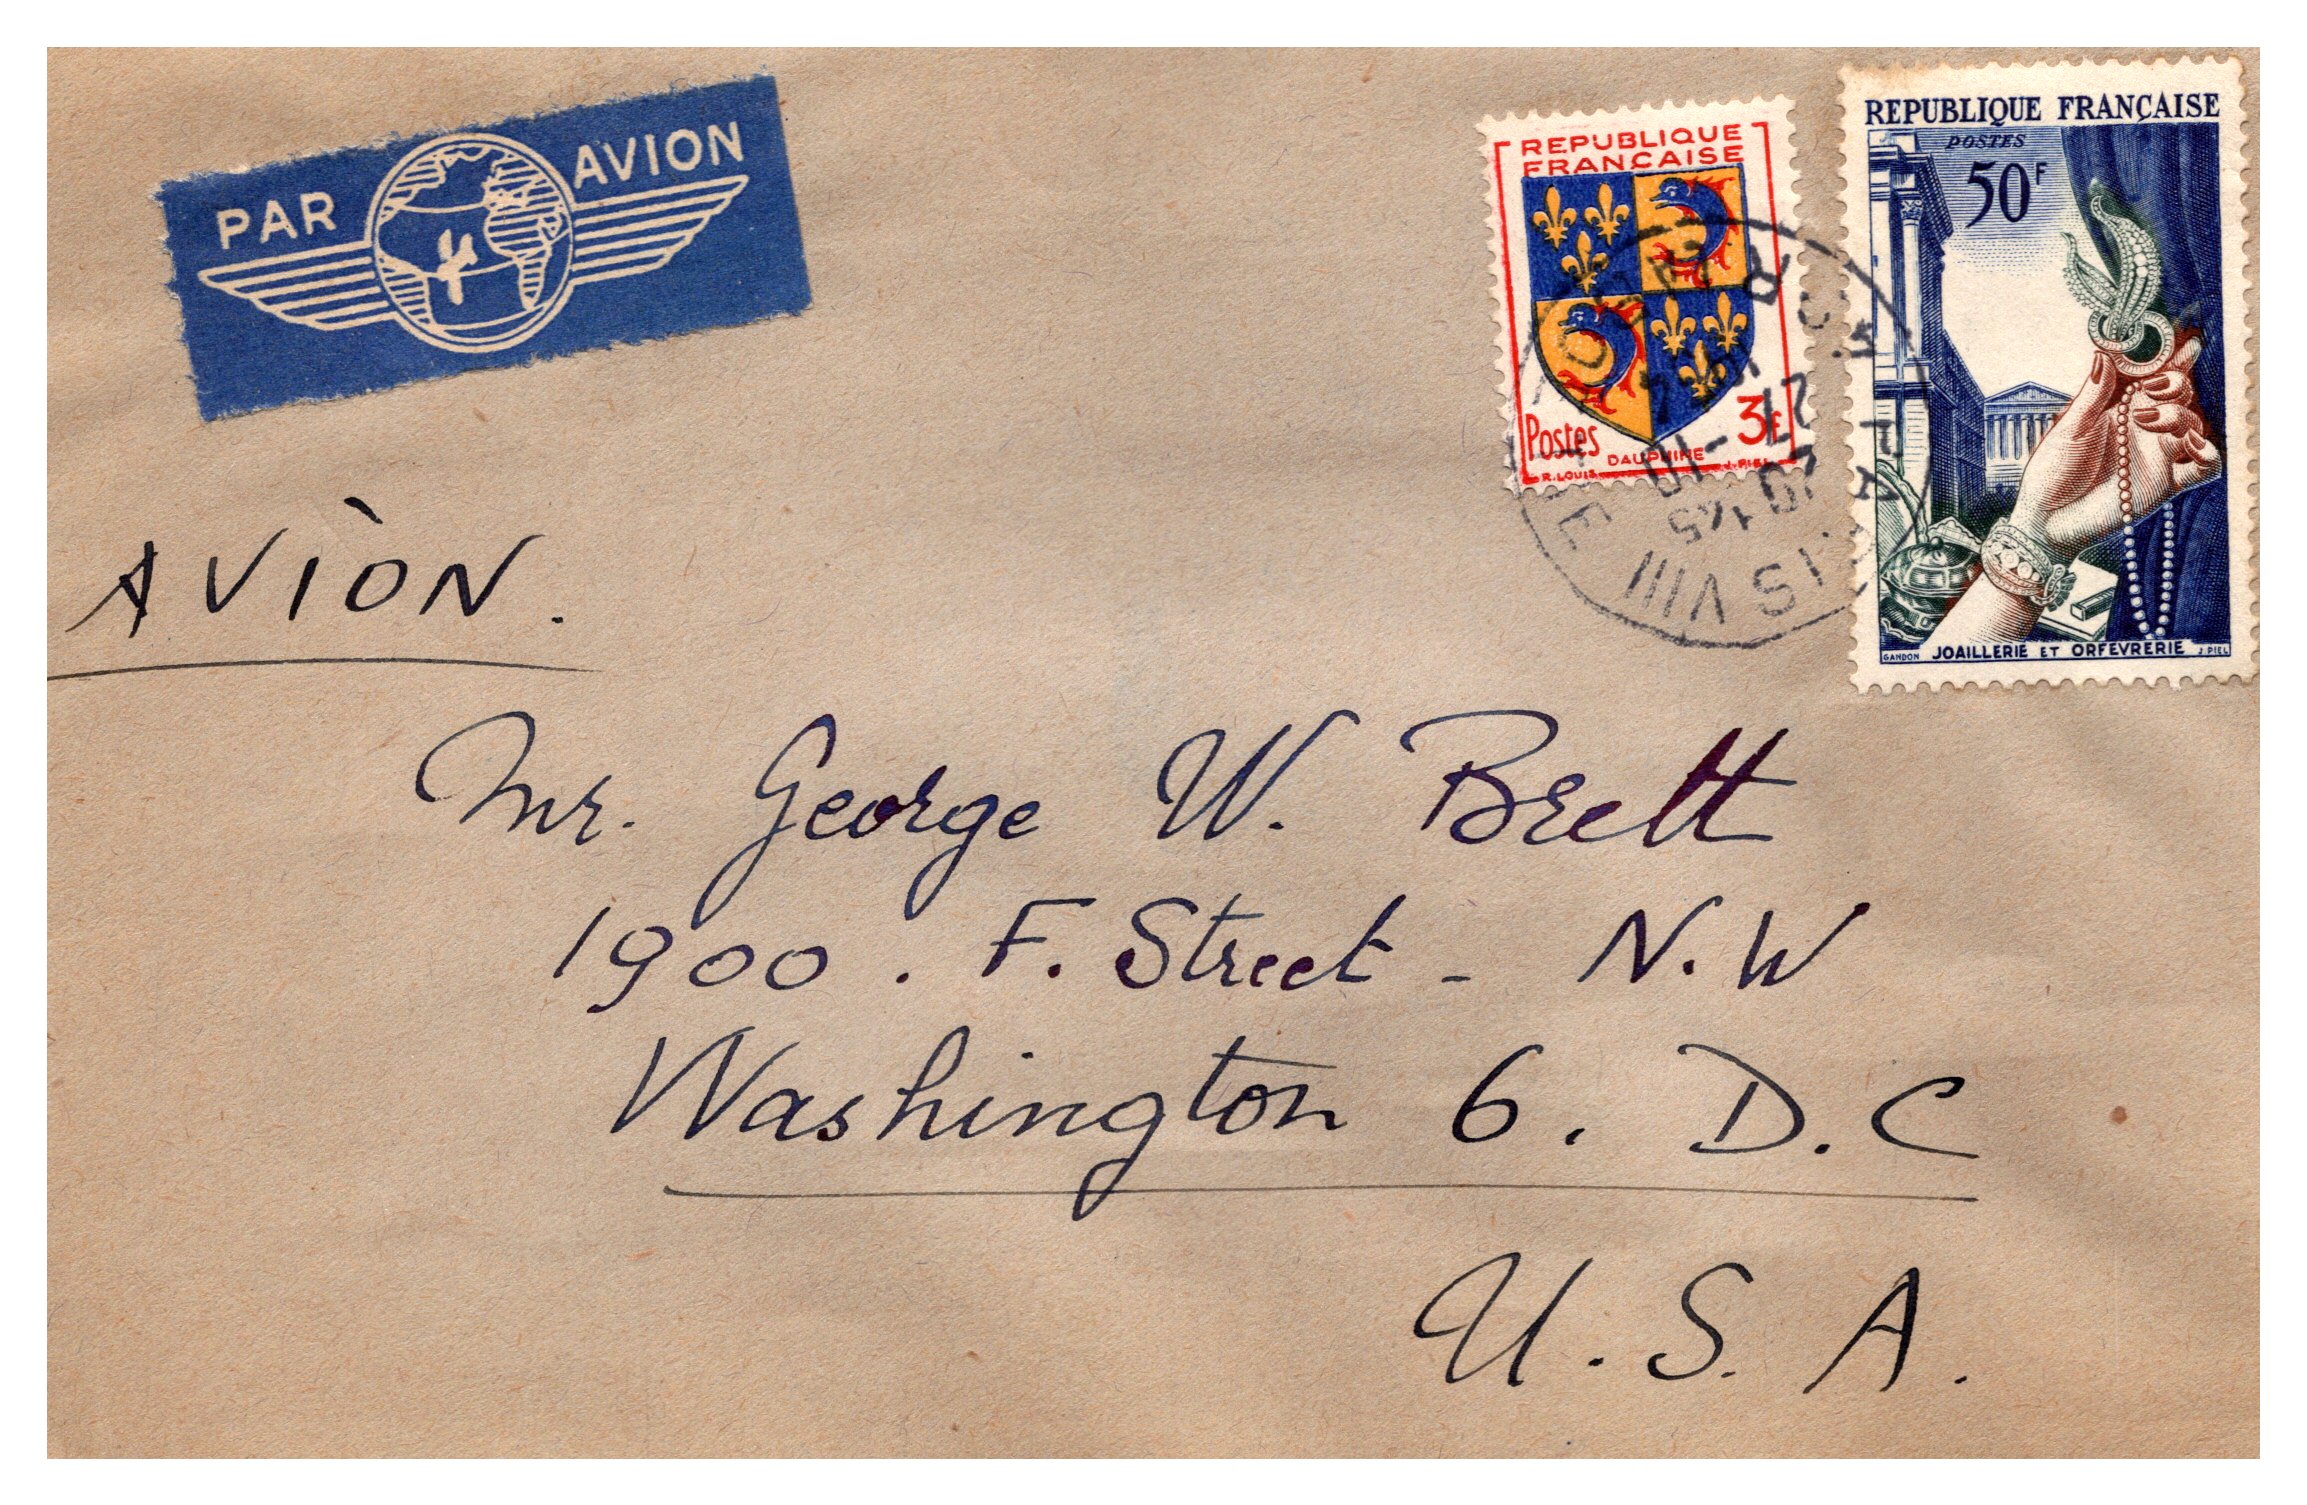 PAR AVION
REPUBLIQUE
FRANÇAISE
Postes
3F
DAUPHINE
R. LOUIS
J. PIEL
REPUBLIQUE FRANÇAISE
POSTES
50F
GANDON JOAILLERIE ET ORFEVRERIE J. PIEL
PARIS VIII E
19 45
27 - 10
AVIÒN.
Mr. George W. Brett
1900. F. Street - N.W
Washington 6. D.C
U.S.A.